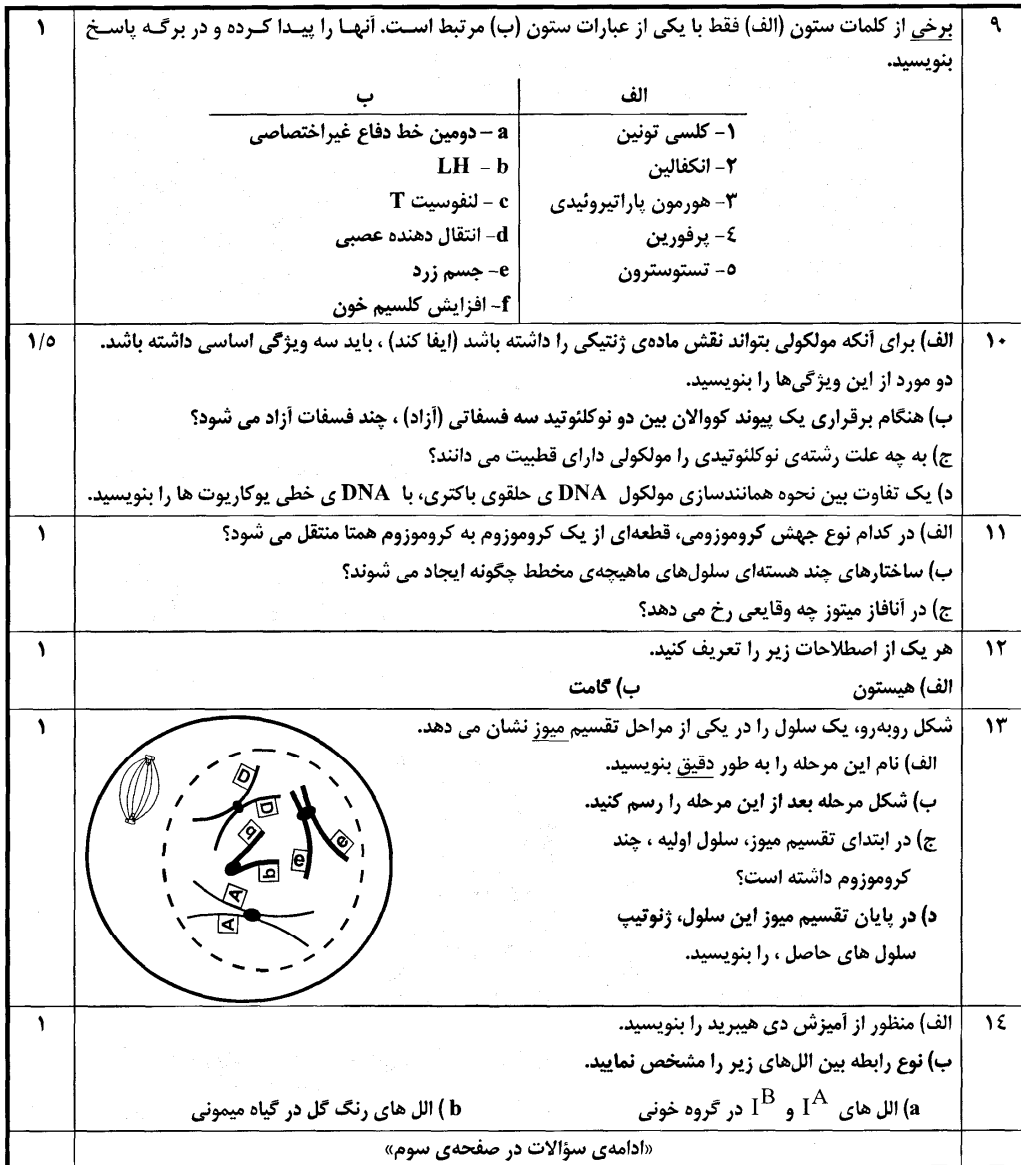 ۹ برخی از کلمات ستون (الف) فقط با یکی از عبارات ستون (ب) مرتبط است. آنها را پیدا کرده و در برگه پاسخ ۱
بنویسید.
الف ب
۱- کلسی تونین a – دومین خط دفاع غیراختصاصی
۲- انکفالین LH – b
۳- هورمون پاراتیروئیدی c – لنفوسیت T
٤- پرفورین d- انتقال دهنده عصبی
٥- تستوسترون e- جسم زرد
f- افزایش کلسیم خون
۱۰ الف) برای آنکه مولکولی بتواند نقش ماده‌ی ژنتیکی را داشته باشد (ایفا کند) ، باید سه ویژگی اساسی داشته باشد. ۱/٥
دو مورد از این ویژگی‌ها را بنویسید.
ب) هنگام برقراری یک پیوند کووالان بین دو نوکلئوتید سه فسفاتی (آزاد) ، چند فسفات آزاد می شود؟
ج) به چه علت رشته‌ی نوکلئوتیدی را مولکولی دارای قطبیت می دانند؟
د) یک تفاوت بین نحوه همانندسازی مولکول DNA ی حلقوی باکتری، با DNA ی خطی یوکاریوت ها را بنویسید.
۱۱ الف) در کدام نوع جهش کروموزومی، قطعه‌ای از یک کروموزوم به کروموزوم همتا منتقل می شود؟ ۱
ب) ساختارهای چند هسته‌ای سلول‌های ماهیچه‌ی مخطط چگونه ایجاد می شوند؟
ج) در آنافاز میتوز چه وقایعی رخ می دهد؟
۱۲ هر یک از اصطلاحات زیر را تعریف کنید. ۱
الف) هیستون ب) گامت
۱۳ شکل روبه‌رو، یک سلول را در یکی از مراحل تقسیم میوز نشان می دهد. ۱
الف) نام این مرحله را به طور دقیق بنویسید.
ب) شکل مرحله بعد از این مرحله را رسم کنید.
ج) در ابتدای تقسیم میوز، سلول اولیه ، چند
کروموزوم داشته است؟
د) در پایان تقسیم میوز این سلول، ژنوتیپ
سلول های حاصل ، را بنویسید.
D
D
b
b
e
e
A
A
۱٤ الف) منظور از آمیزش دی هیبرید را بنویسید. ۱
ب) نوع رابطه بین الل‌های زیر را مشخص نمایید.
a) الل های I^A و I^B در گروه خونی b ) الل های رنگ گل در گیاه میمونی
«ادامه‌ی سؤالات در صفحه‌ی سوم»